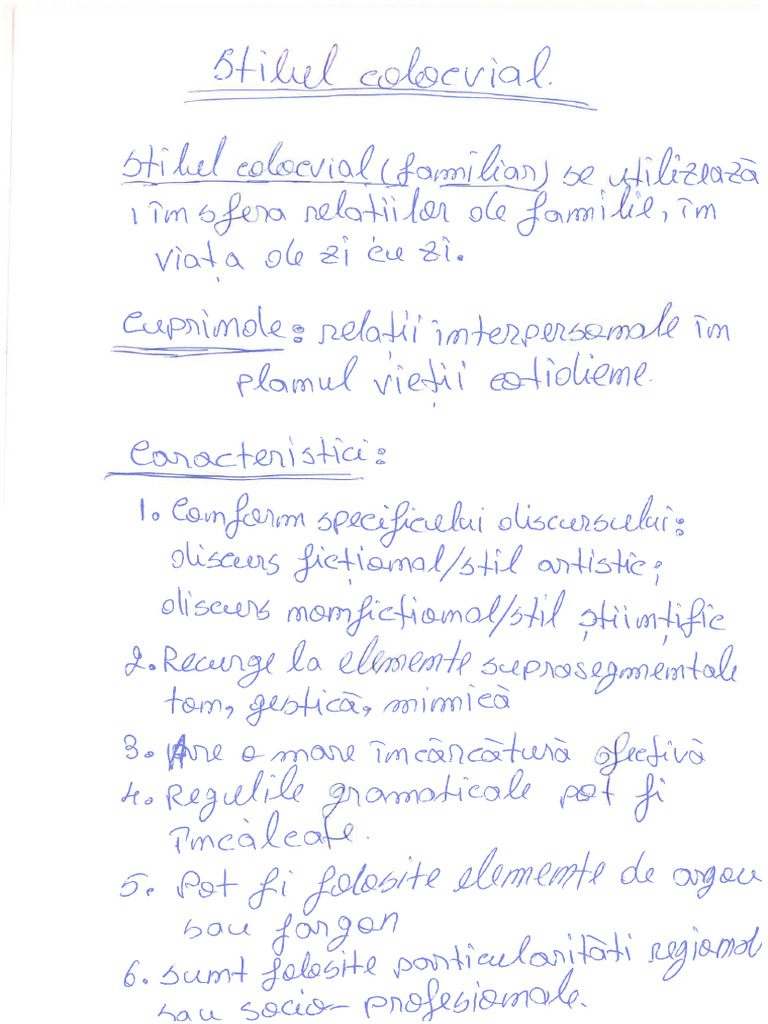 Stilul colocvial.
Stilul colocvial (familiar) se utilizează
în sfera relatiilor de familie, în
viața de zi cu zi.
Cuprinde: relații interpersonale în
planul vieții cotidiene.
Caracteristici:
1. Conform specificului discursului:
discurs ficțional/stil artistic;
discurs nonficțional/stil științific
2. Recurge la elemente suprasegmentale
ton, gestică, mimică
3. Are o mare încărcătură afectivă
4. Regulile gramaticale pot fi
încălcate.
5. Pot fi folosite elemente de argou
sau jargon
6. sunt folosite particularități regional
sau socio-profesionale.